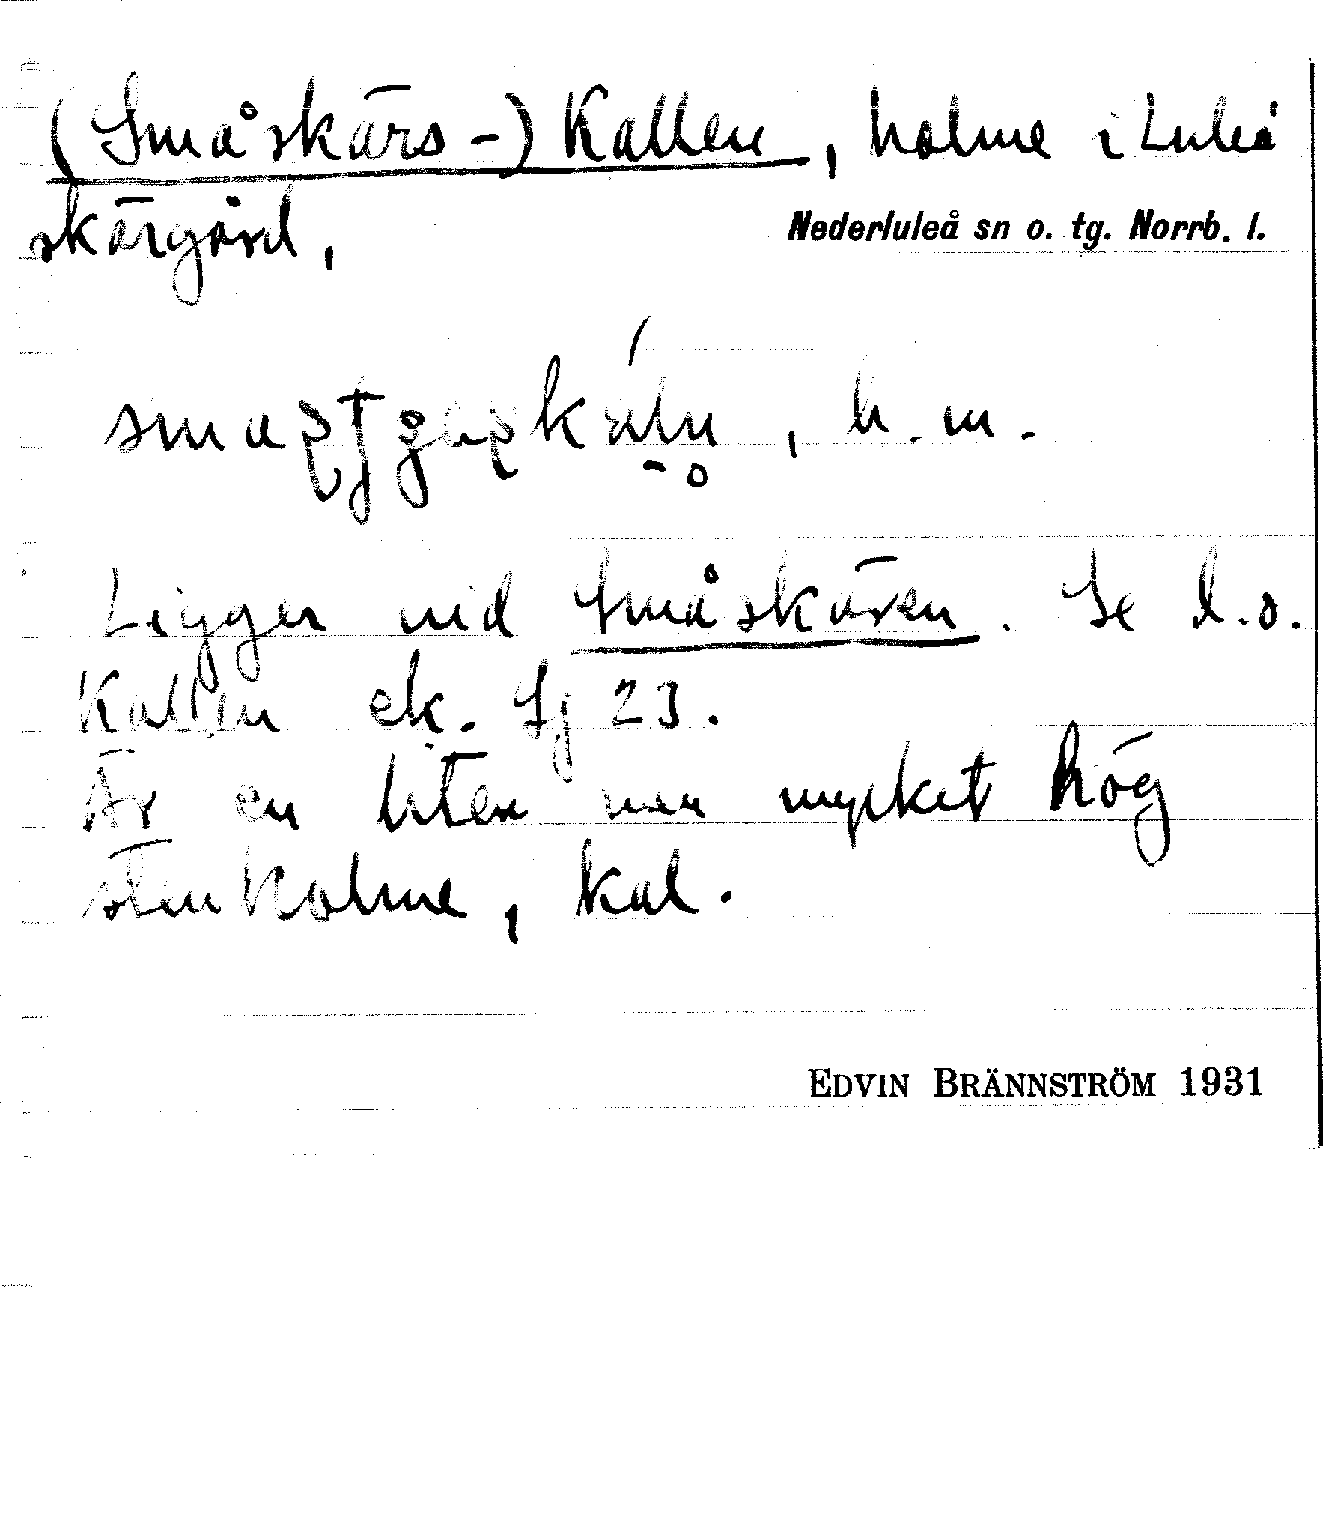 (Småskärs-) Kallen, holme i Luleå
skärgård,
Nederluleå sn o. tg. Norrb. l.
, b. m.
Ligger vid Småskären. Se l.o.
Kallen ek. Sj 23.
Är en liten men mycket hög
stenholme, kal.
EDVIN BRÄNNSTRÖM 1931